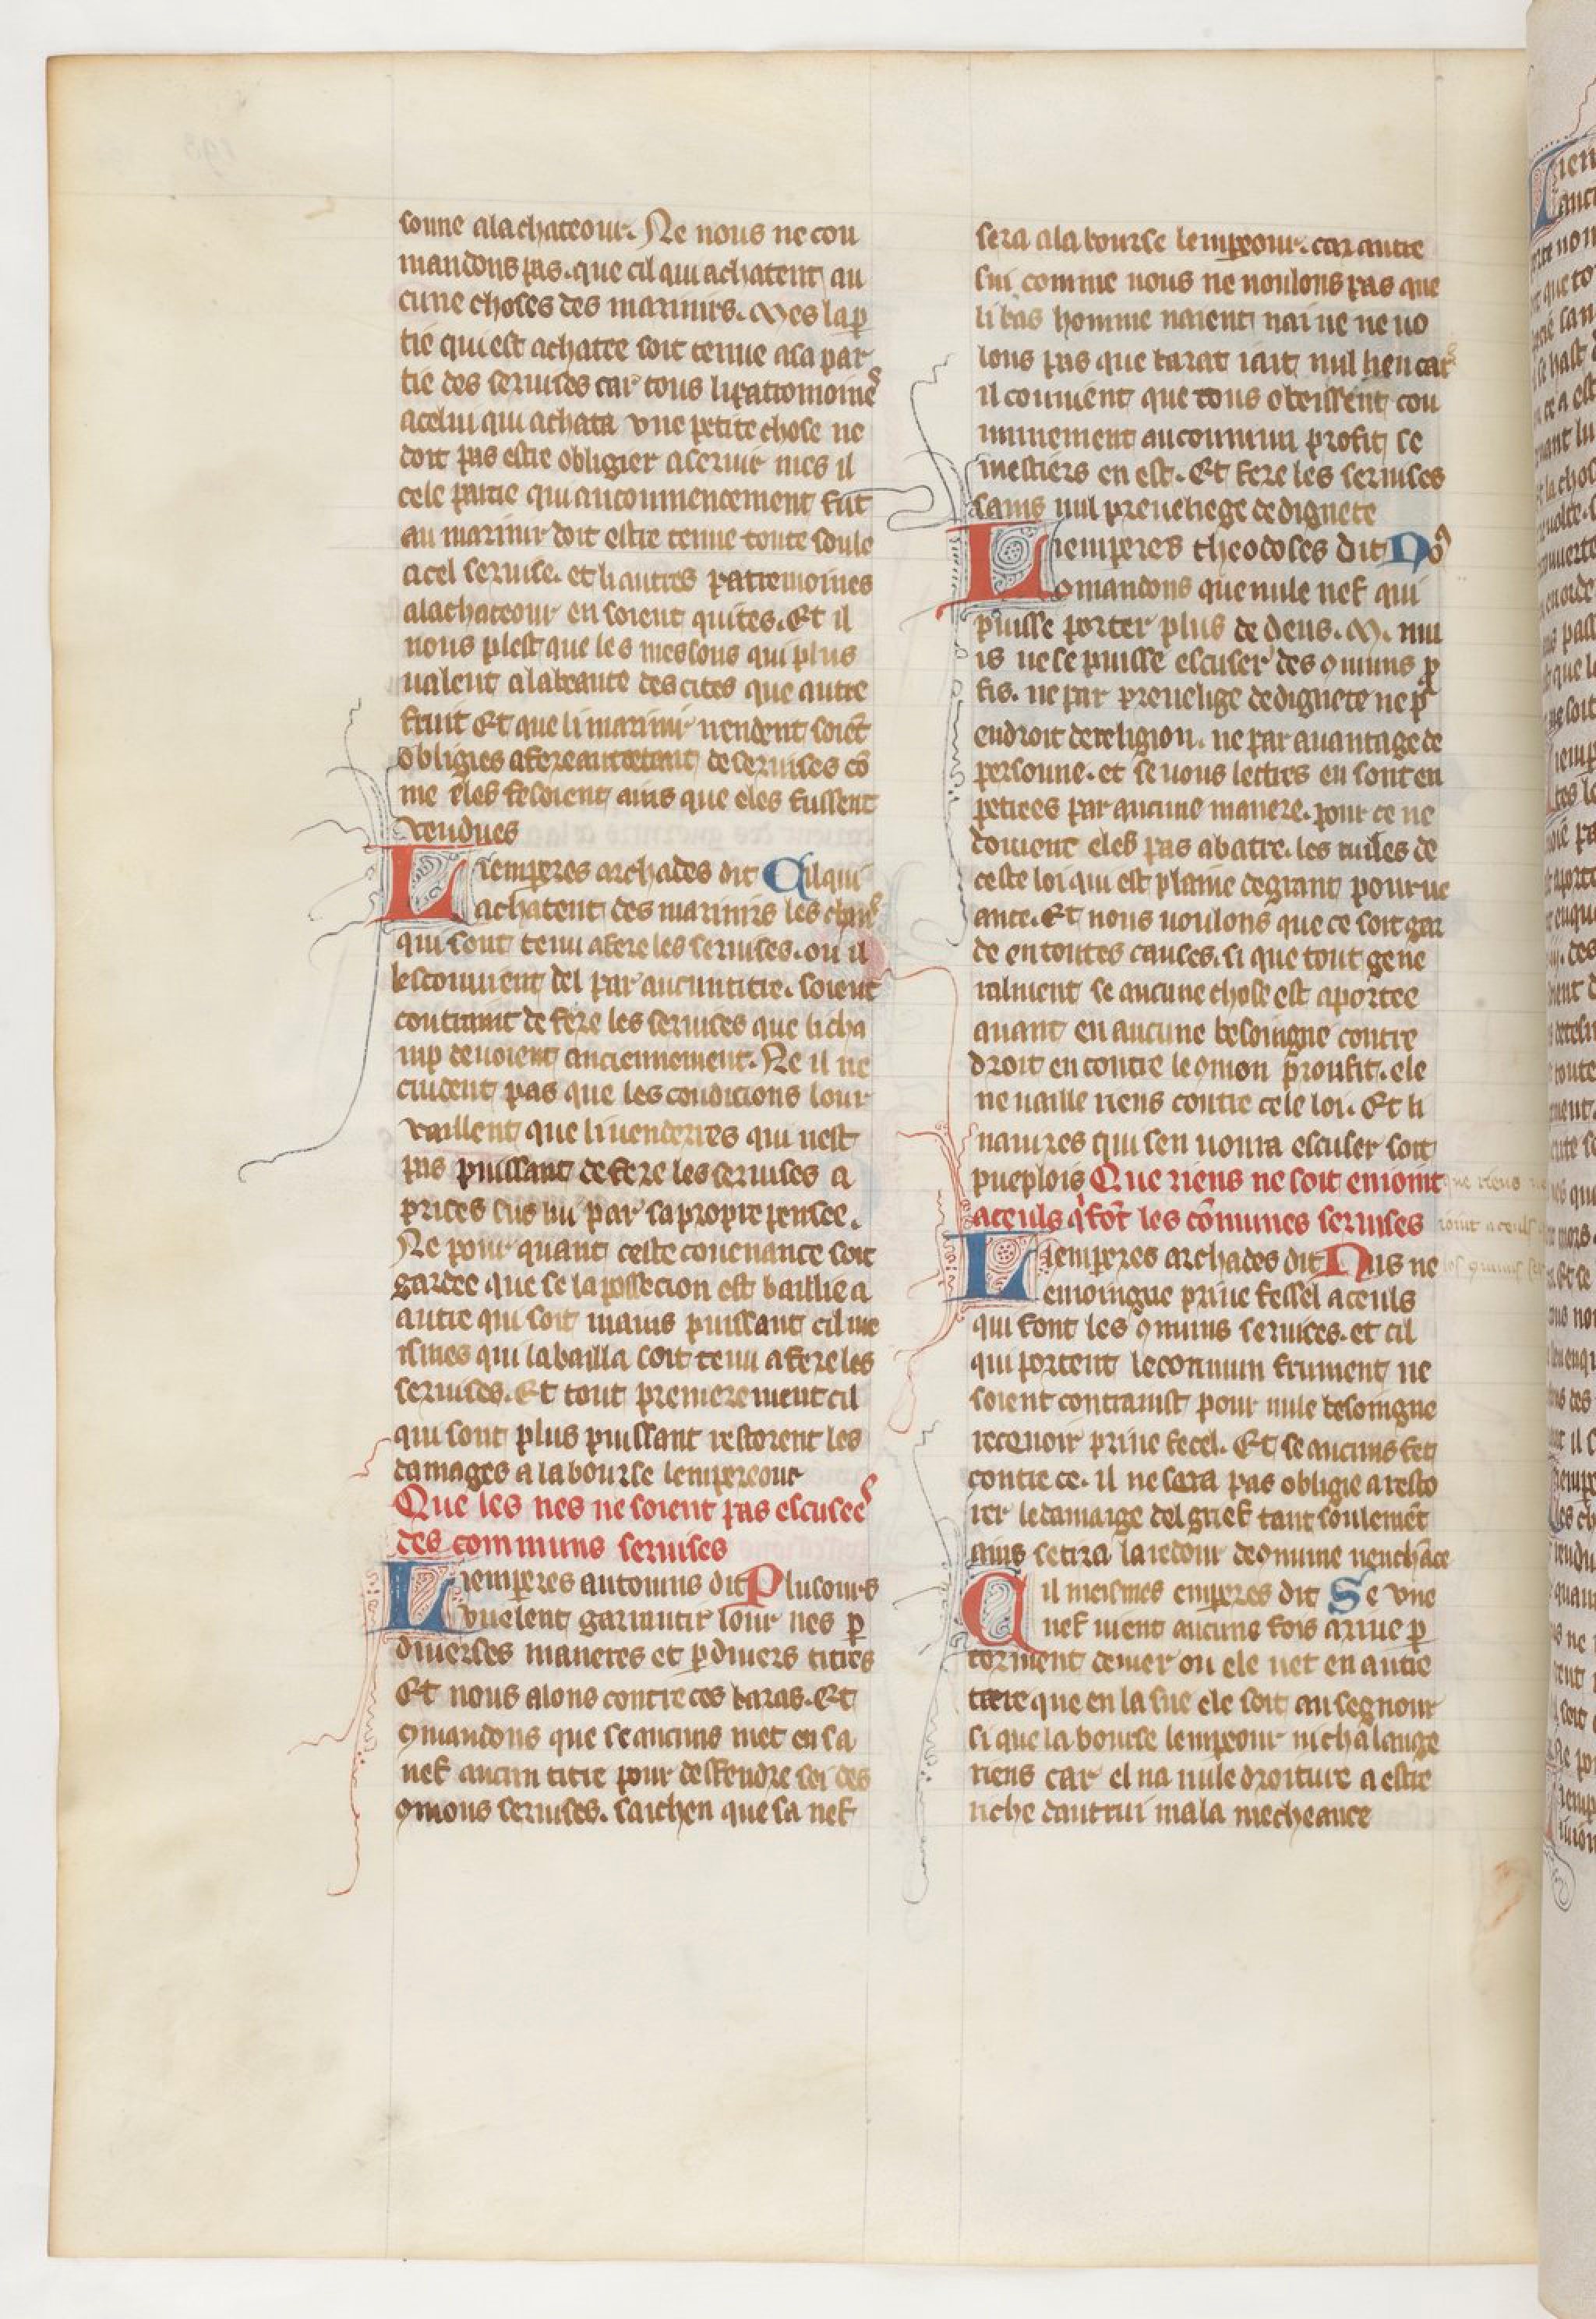 sonne alachateour. Ne nous ne cou
mandons pas. que cil qui achatent au
cune choses des marinirs. Mes lap̱
tie qui est achatee soit tenue a sa par
tie des seruises car tous li patromoine
acelui qui achata vne petite chose ne
doit pas estre obligier a seruir mes il
cele partie qui au coumencement fut
au marinir doit estre tenue toute soule
a cel seruise. et li autres patremoines
alachateour en soient quites. Et il
nous plest que les messons qui plus
ualent a la beaute des cites que autre
fruit Et que li marinir uendent soiēt
obligies a fere autretant de seruises cō
me eles fesoient ains que eles fussent
vendues
Liemperes archades dit Cil qui
achatent des marinirs les chans
qui sont tenu a fere les seruises. ou il
les touuient del par aucun titre. soient
contraint de fere les seruices que li cha
mp deuoient anciennement. Ne il ne
cuident pas que les condicions lour
vaillent que li uenderres qui nest
pas puissant de fere les seruises a
prices sus lui par sa propre pensee.
Ne pour quant ceste couenance soit
gardee que se la possecion est baillie a
autre qui soit mains puissant cil me
ismes qui la bailla soit tenu a fere les
seruises. Et tout premerement cil
qui sont plus puissant restorent les
damages a la bourse lempereour
Que les nes ne soient pas escusees
des communs seruises
Liemperes antonius dit Plusours
vuelent garrantir lour nes p̱
diuerses maneres et p̱ diuers titres
Et nous alons contre ces baras. Et
ꝯmandons que se aucuns met en sa
nef aucun titre pour desfendre soi des
ꝯmons seruises. saichen que sa nef
sera a la bourse lemp̱eour. car autre
sui comme nous ne uoulons pas que
li bas homme naient naiue ne uo
lons pas que barat iait nul lieu car
il couuient que tous obeissent cou
munement au coumun profit se
mestiers en est. Et fere les seruises
sans nul preueliege de dignete
Liemperes theodoses dit Noꝯ
ꝯmandons que nule nef qui
puisse porter plus de deus. M. mui
is ne se puisse escuser des ꝯmuns p̱
fis. ne par preuelige de dignete ne p̱
endroit de religion. ne par auantage de
personne. et se nous lectres en sont en
petrees par aucune manere. pour ce ne
doiuent eles pas abatre. les ruiles de
ceste loi qui est plaine de grant pourue
ance. Et nous uoulons que ce soit gar
de en toutes causes. si que tout gene
ralment se aucune chose est aportee
auant en aucune besoingne contre
droit en contre le ꝯmon proufit. ele
ne uaille riens contre cele loi. Et li
nauires qui sen uoura escuser soit
pueplois Que riens ne soit enioint
a ceuls q̇ fōt les cōmunes seruises
Liemperes archades dit Nus ne
enioingne priue fessel a ceuls
qui font les ꝯmuns seruices. et cil
qui portent le commun frument ne
soient contrainst pour nule besoingne
receuoir priue fecel. Et se aucuns fet
contre ce. il ne sera pas obligie a resto
rer le damaige del grief tant soulemēt
ains sētira la redour de ꝯmune uenchāce
Cil meismes emperes dit Se vne
nef uient aucune fois a riue p̱
torment de mer ou ele uet en autre
terre que en la sue ele soit au segnour
si que la bourse lemp̱eour ni chalange
riens car el na nule droiture a estre
riche dautrui mala mecheance